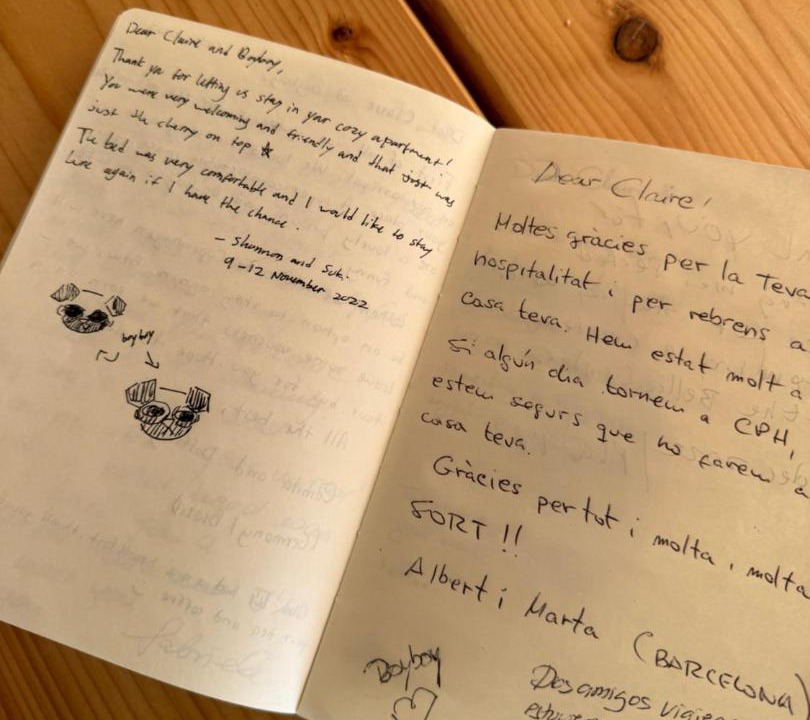 Dear Claire and Boyboy,
Thank you for letting us stay in your cozy apartment!
You were very welcoming and friendly and that just was
just the cherry on top
The bed was very comfortable and I would like to stay
here again if I have the chance.
- Shannon and Suki
9-12 November 2022
boyboy
Dear Claire!
Moltes gràcies per la teva
hospitalitat i per rebrens a
casa teva. Hem estat molt a
Si algún dia tornem a CPH,
estem segurs que ho farem a
casa teva.
Gràcies per tot i molta, molta
SORT!!
Albert i Marta (BARCELONA)
Boyboy
Dos amigos